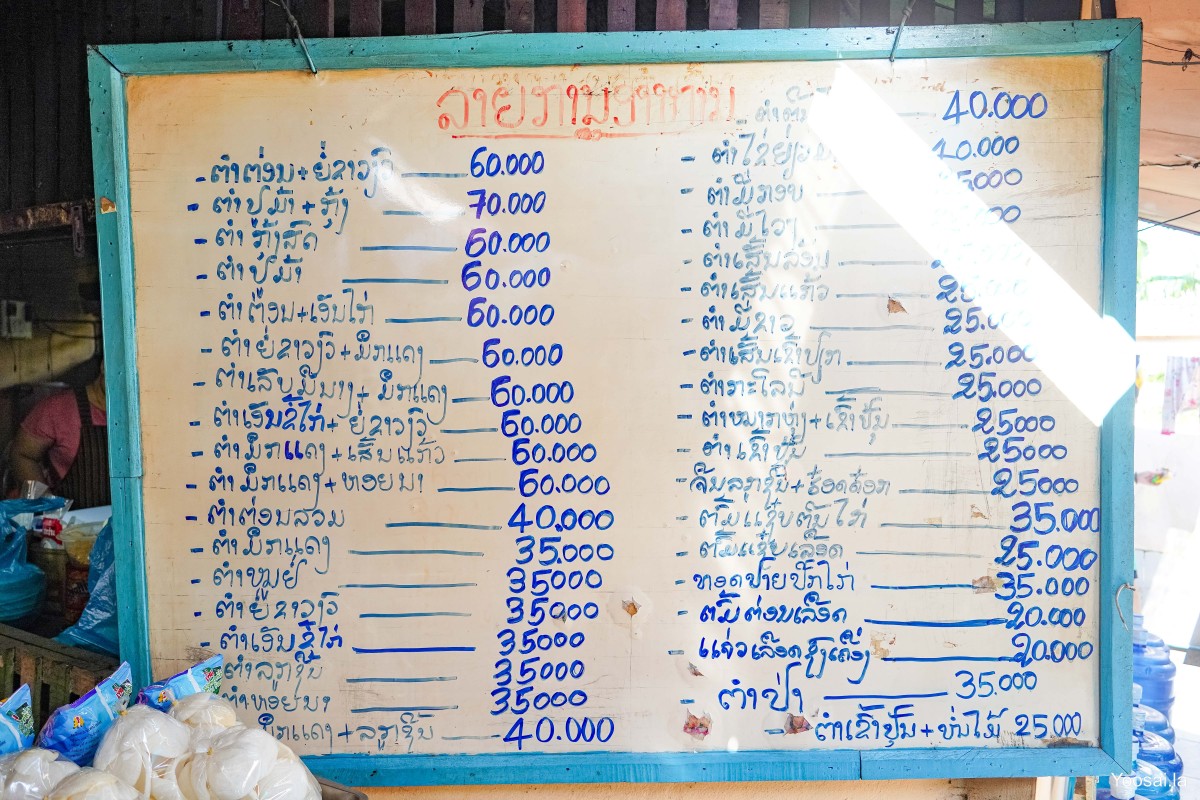 ລາຍການອາຫານ
- ຕຳຕ່ອນ+ຍໍຂາວງົວ 60.000
- ຕຳປູມ້າ+ກຸ້ງ 70.000
- ຕຳກຸ້ງສົດ 60.000
- ຕຳປູມ້າ 60.000
- ຕຳຕ່ອນ+ເອັນໄກ່ 60.000
- ຕຳຍໍຂາວງົວ+ມຶກແດງ 60.000
- ຕຳເສັ້ນ +ມຶກແດງ 60.000
- ຕຳເອັນຂໍ້ໄກ່+ຍໍຂາວງົວ 60.000
- ຕຳມຶກແດງ+ເສັ້ນແກ້ວ 60.000
- ຕຳມຶກແດງ+ຫອຍນາ 60.000
- ຕຳຕ່ອນລວມ 40.000
- ຕຳມຶກແດງ 35.000
- ຕຳໝູຢໍ 35000
- ຕຳຍໍຂາວງົວ 35000
- ຕຳເອັນຂໍ້ໄກ່ 35000
ຕຳລູກຊີ້ນ 35000
ຕຳຫອຍນາ 35000
ມຶກແດງ+ລູກຊີ້ນ 40.000
- 40.000
- ຕຳໄຂ່ຢ່ຽວມ້າ 40.000
- ຕຳໝີ່ກອບ
- ຕຳໝີ່ໄວໆ
- ຕຳເສັ້ນລ້ອນ
- ຕຳເສັ້ນແກ້ວ
- ຕຳໝີ່ຂາວ 25.000
- ຕຳເສັ້ນເຂົ້າປຽກ 25.000
- ຕຳກະໂລນີ 25.000
- ຕຳໝາກຫຸ່ງ+ເຂົ້າປຸ້ນ 25000
- ຕຳເຂົ້າປຸ້ນ 25000
- ຈືນລູກຊີ້ນ+ຮອດດ໋ອກ 25000
- ຕົ້ມແຊ່ບຕີນໄກ່ 35.000
- ຕົ້ມແຊ່ບເລືອດ 25.000
- ທອດປາຍປີກໄກ່ 35.000
- ຕົ້ມຕ່ອນເລືອດ 20.000
- ແຈ່ວເລືອດຊົງເຄື່ອງ 20.000
- ຕຳປ່າ 35.000
- ຕຳເຂົ້າປຸ້ນ+ໜໍ່ໄມ້ 25.000
Yensai.la